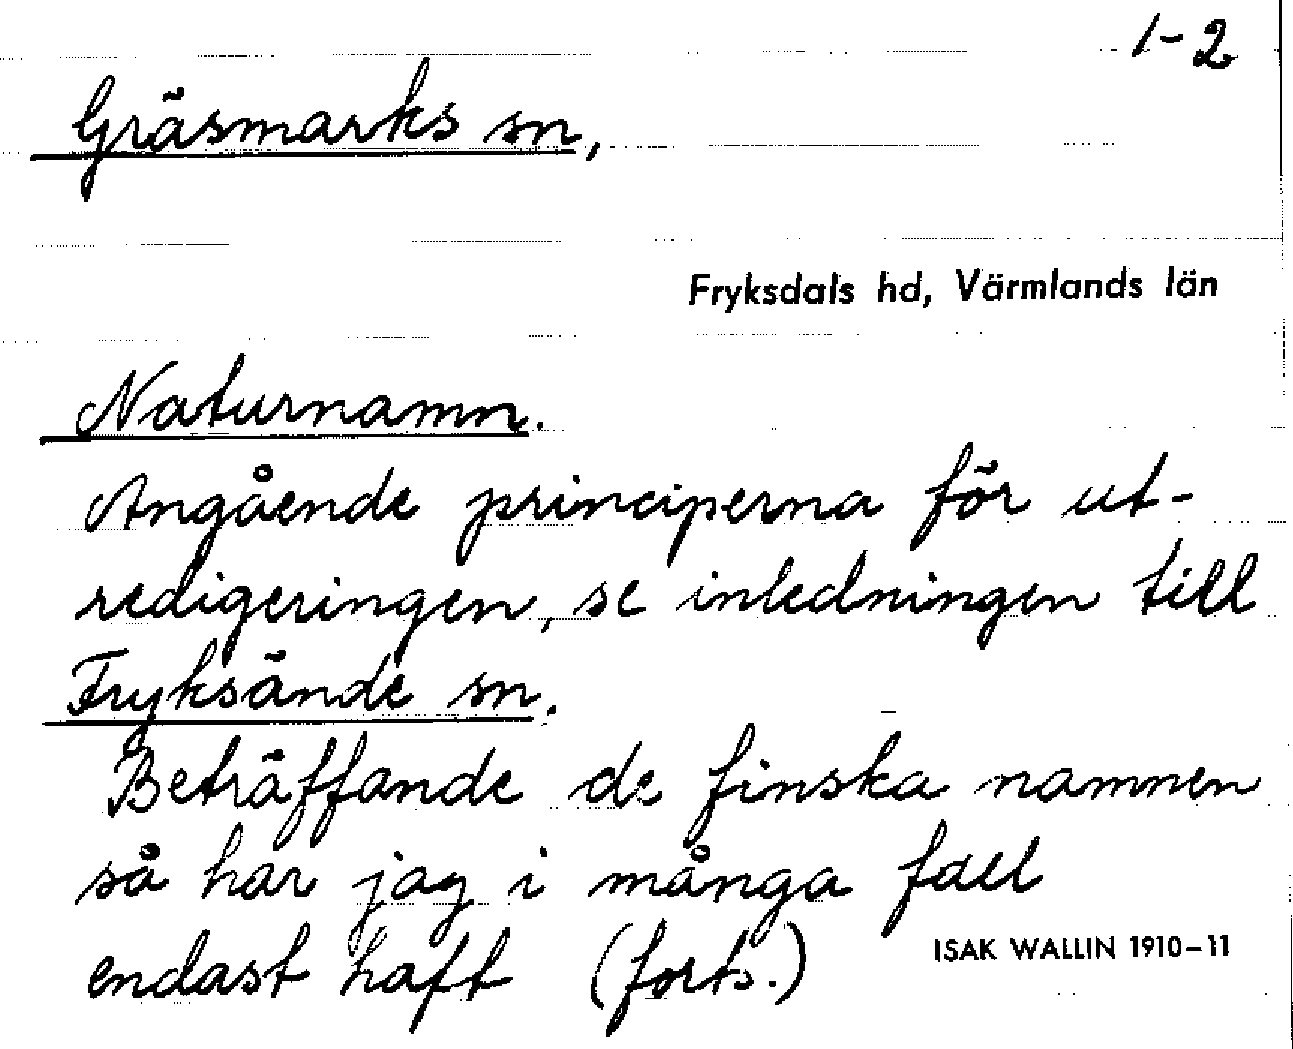 1-2
Gräsmarks sn,
Fryksdals hd, Värmlands län
Naturnamn.
Angående principerna för ut-
redigeringen, se inledningen till
Fryksände sn.
Beträffande de finska namnen
så har jag i många fall
endast haft (forts.)
ISAK WALLIN 1910-11